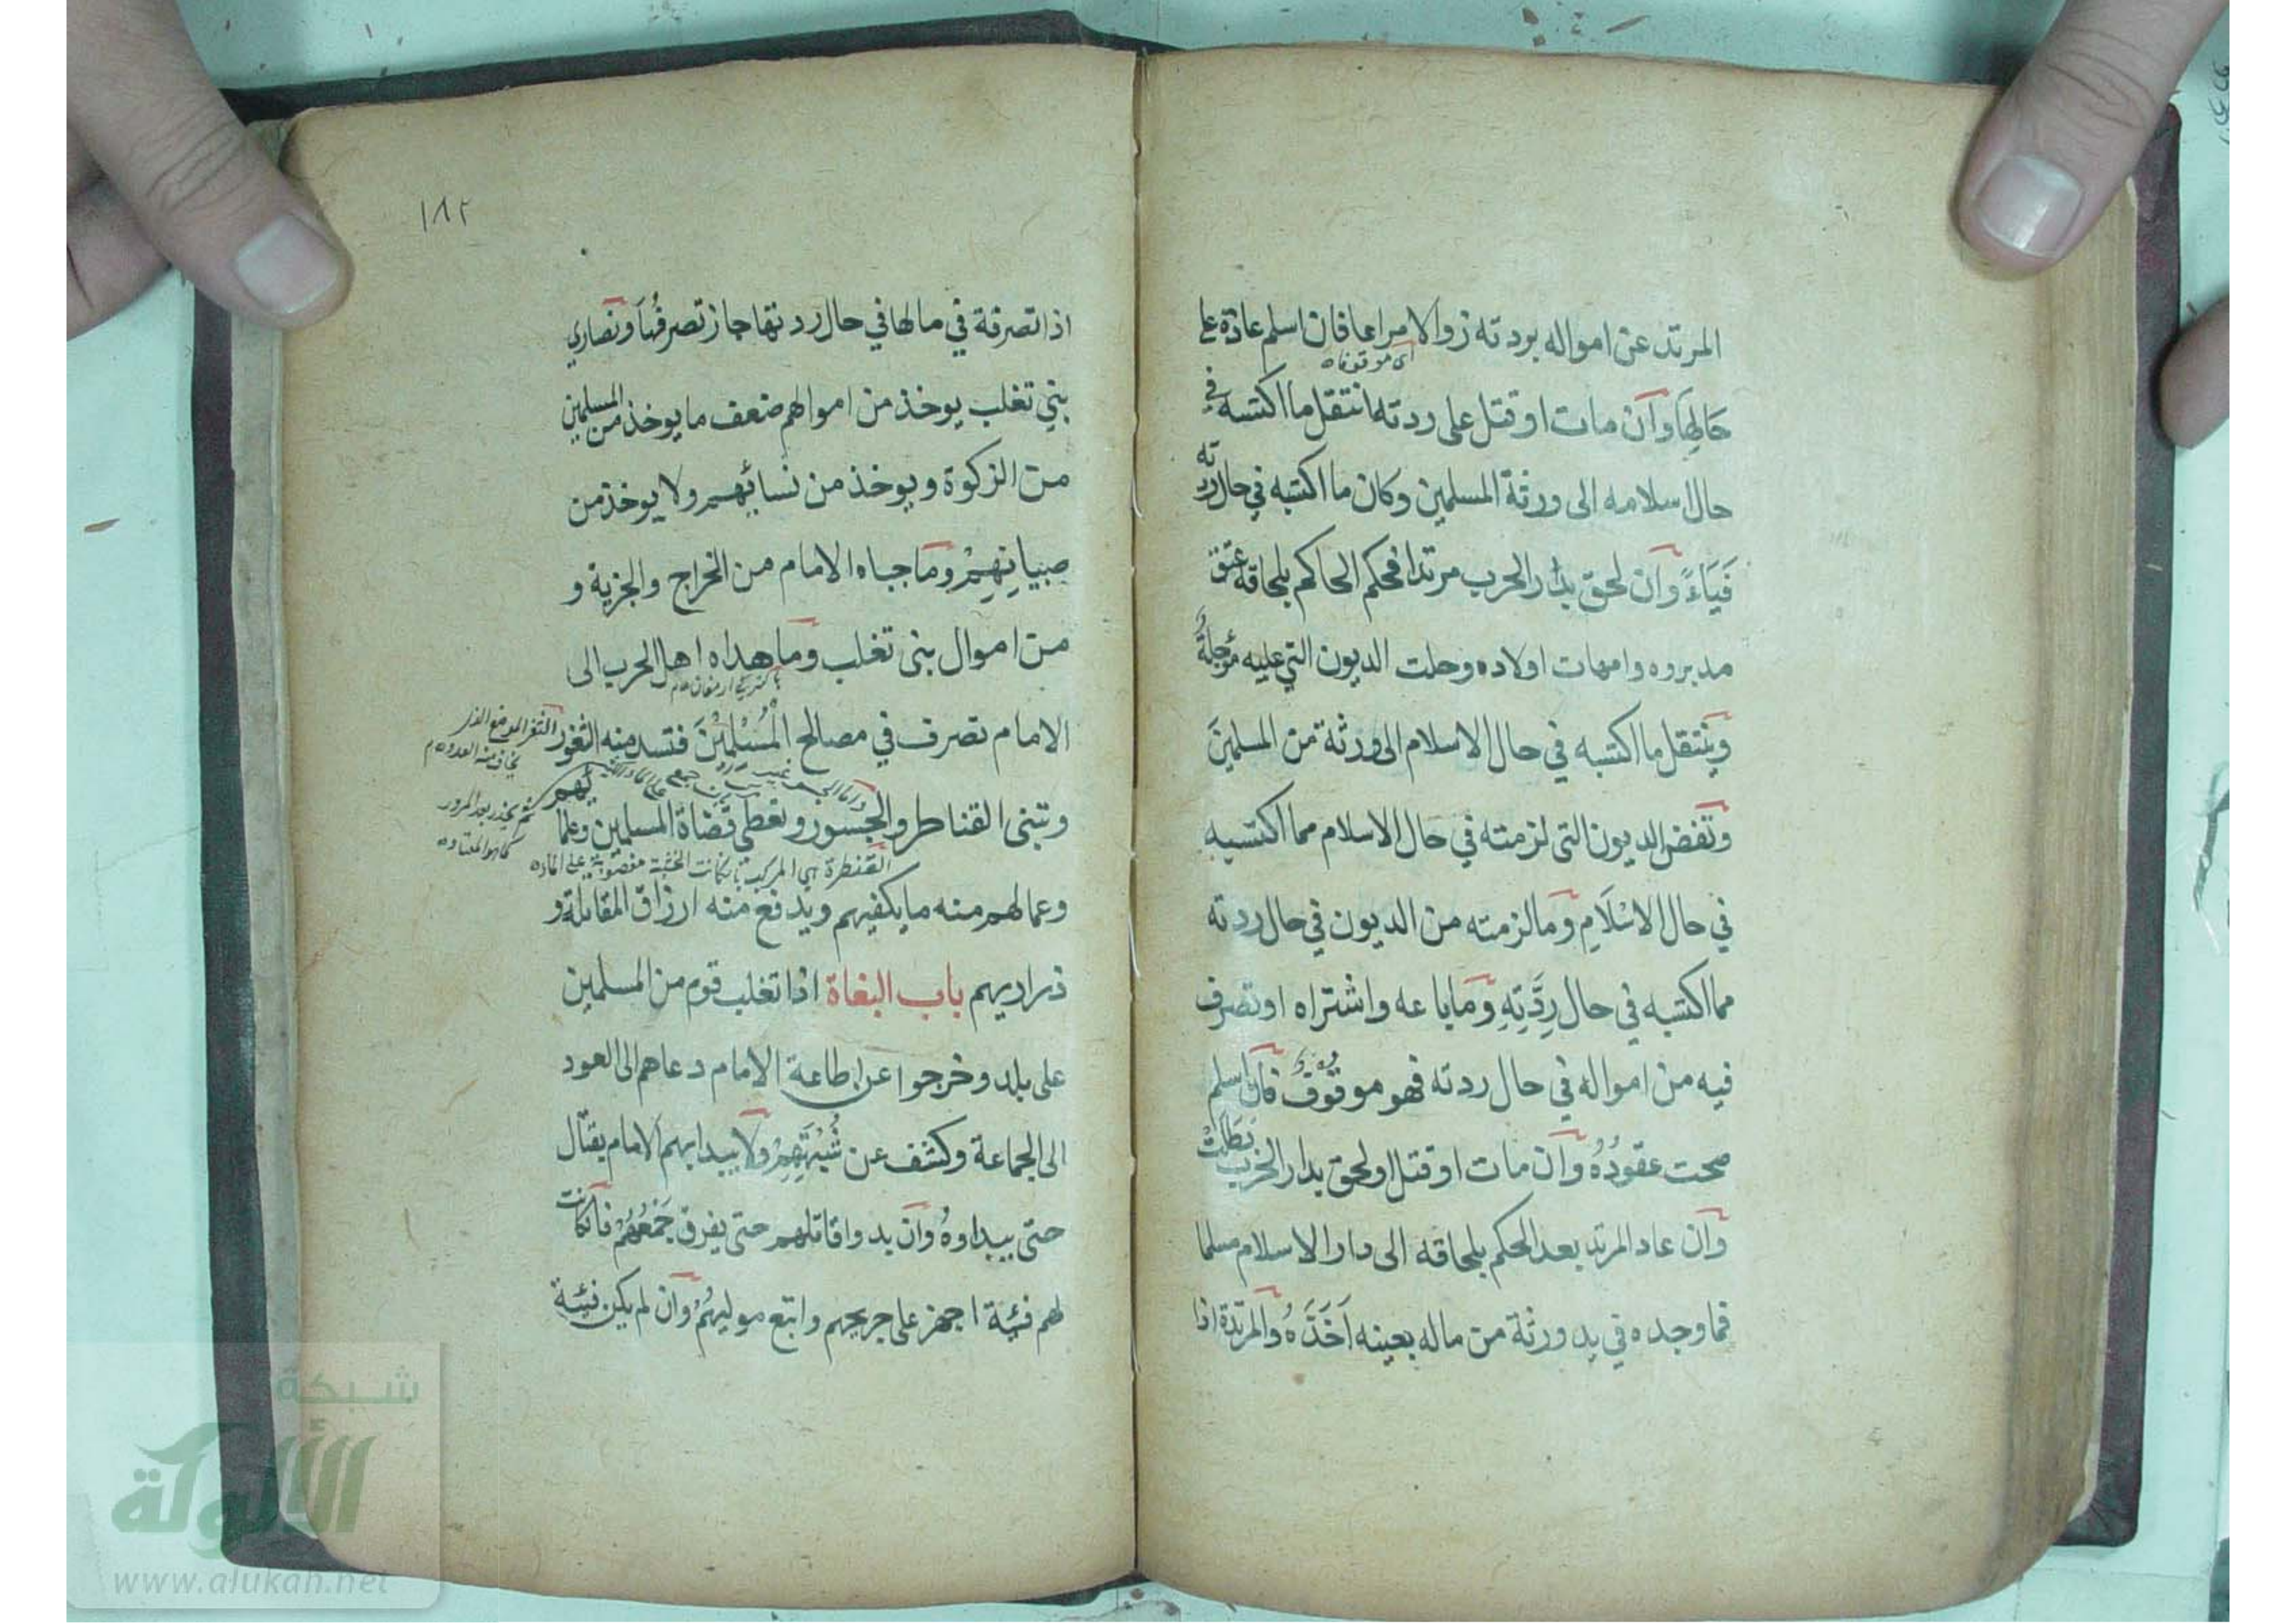 المرتد عن امواله بردته زوالا مراعا فان اسلم عادة على
اى موقوفاه
حَالِهَا وان مات او قتل على ردته انتقل ما اكتسبه في
حال اسلامه الى ورثة المسلمين وكان ما اكتسبه في حال ردته
فَيَاءً وان لحق بدار الحرب مرتدا فحكم الحاكم بلحاقه عتق
مدبروه وامهات اولاده وحلت الديون التي عليه مؤجلةُ
وينتقل ما اكتسبه في حال الاسلام الى ورثة من المسلمينَ
وتفض الديون التى لزمته في حال الاسلام مما اكتسبه
في حال الاسْلَامِ وما لزمته من الديون في حال ردته
مما اكتسبه في حال رِدَّتِهِ وما باعه واشتراه او تصرف
فيه من امواله في حال ردته فهو موقوف فان اسلم
صحت عقودُهُ وان مات او قتل اولحق بدار الحرب بَطَلَتْ
وان عاد المرتد بعد الحكم بلحاقه الى دار الاسلام مسلما
فما وجده في يد ورثة من ماله بعينه اَخَذَهُ والمرتدة اذا
١٨٢
اذا تصرفة في مالها في حال ردتها جاز تصرفُها ونصاري
بني تغلب يوخذ من اموالهم ضعف ما يوخذ من المسلمين
من الزكوة ويوخذ من نسائهم ولا يوخذ من
صبيانِهِمْ وما جباه الامام من الخراج والجزية و
من اموال بنى تغلب وما هداه اهل الحرب الى
الامام تصرف في مصالح المُسْلِمِيْنَ فتسد منه الثغور
الثغر الموضع الذى
يخاف منه العدو
وتبنى القناطر والجسور وتعطى قضاة المسلمين وعلمائهم
ثم يجذر بعد المرور
كما هو المعتاده
القنطرة هى المركبة
وعمالهم منه ما يكفيهم ويدفع منه ارزاق المقاتلة و
ذراريهم باب البغاة اذا تغلب قوم من المسلمين
على بلد وخرجوا عن اطاعة الامام دعاهم الى العود
الى الجماعة وكشف عن شُبْهَتِهِمْ ولا يبدا بهم الامام بقتال
حتى يبداوهُ وان بدوا قاتلهم حتى يفرق جَمْعُهُمْ فان كانت
لهم فئية اجهز على جريحهم واتبع موليهُمْ وان لم يكن فئية
شبكة
الألوكة
www.alukah.net